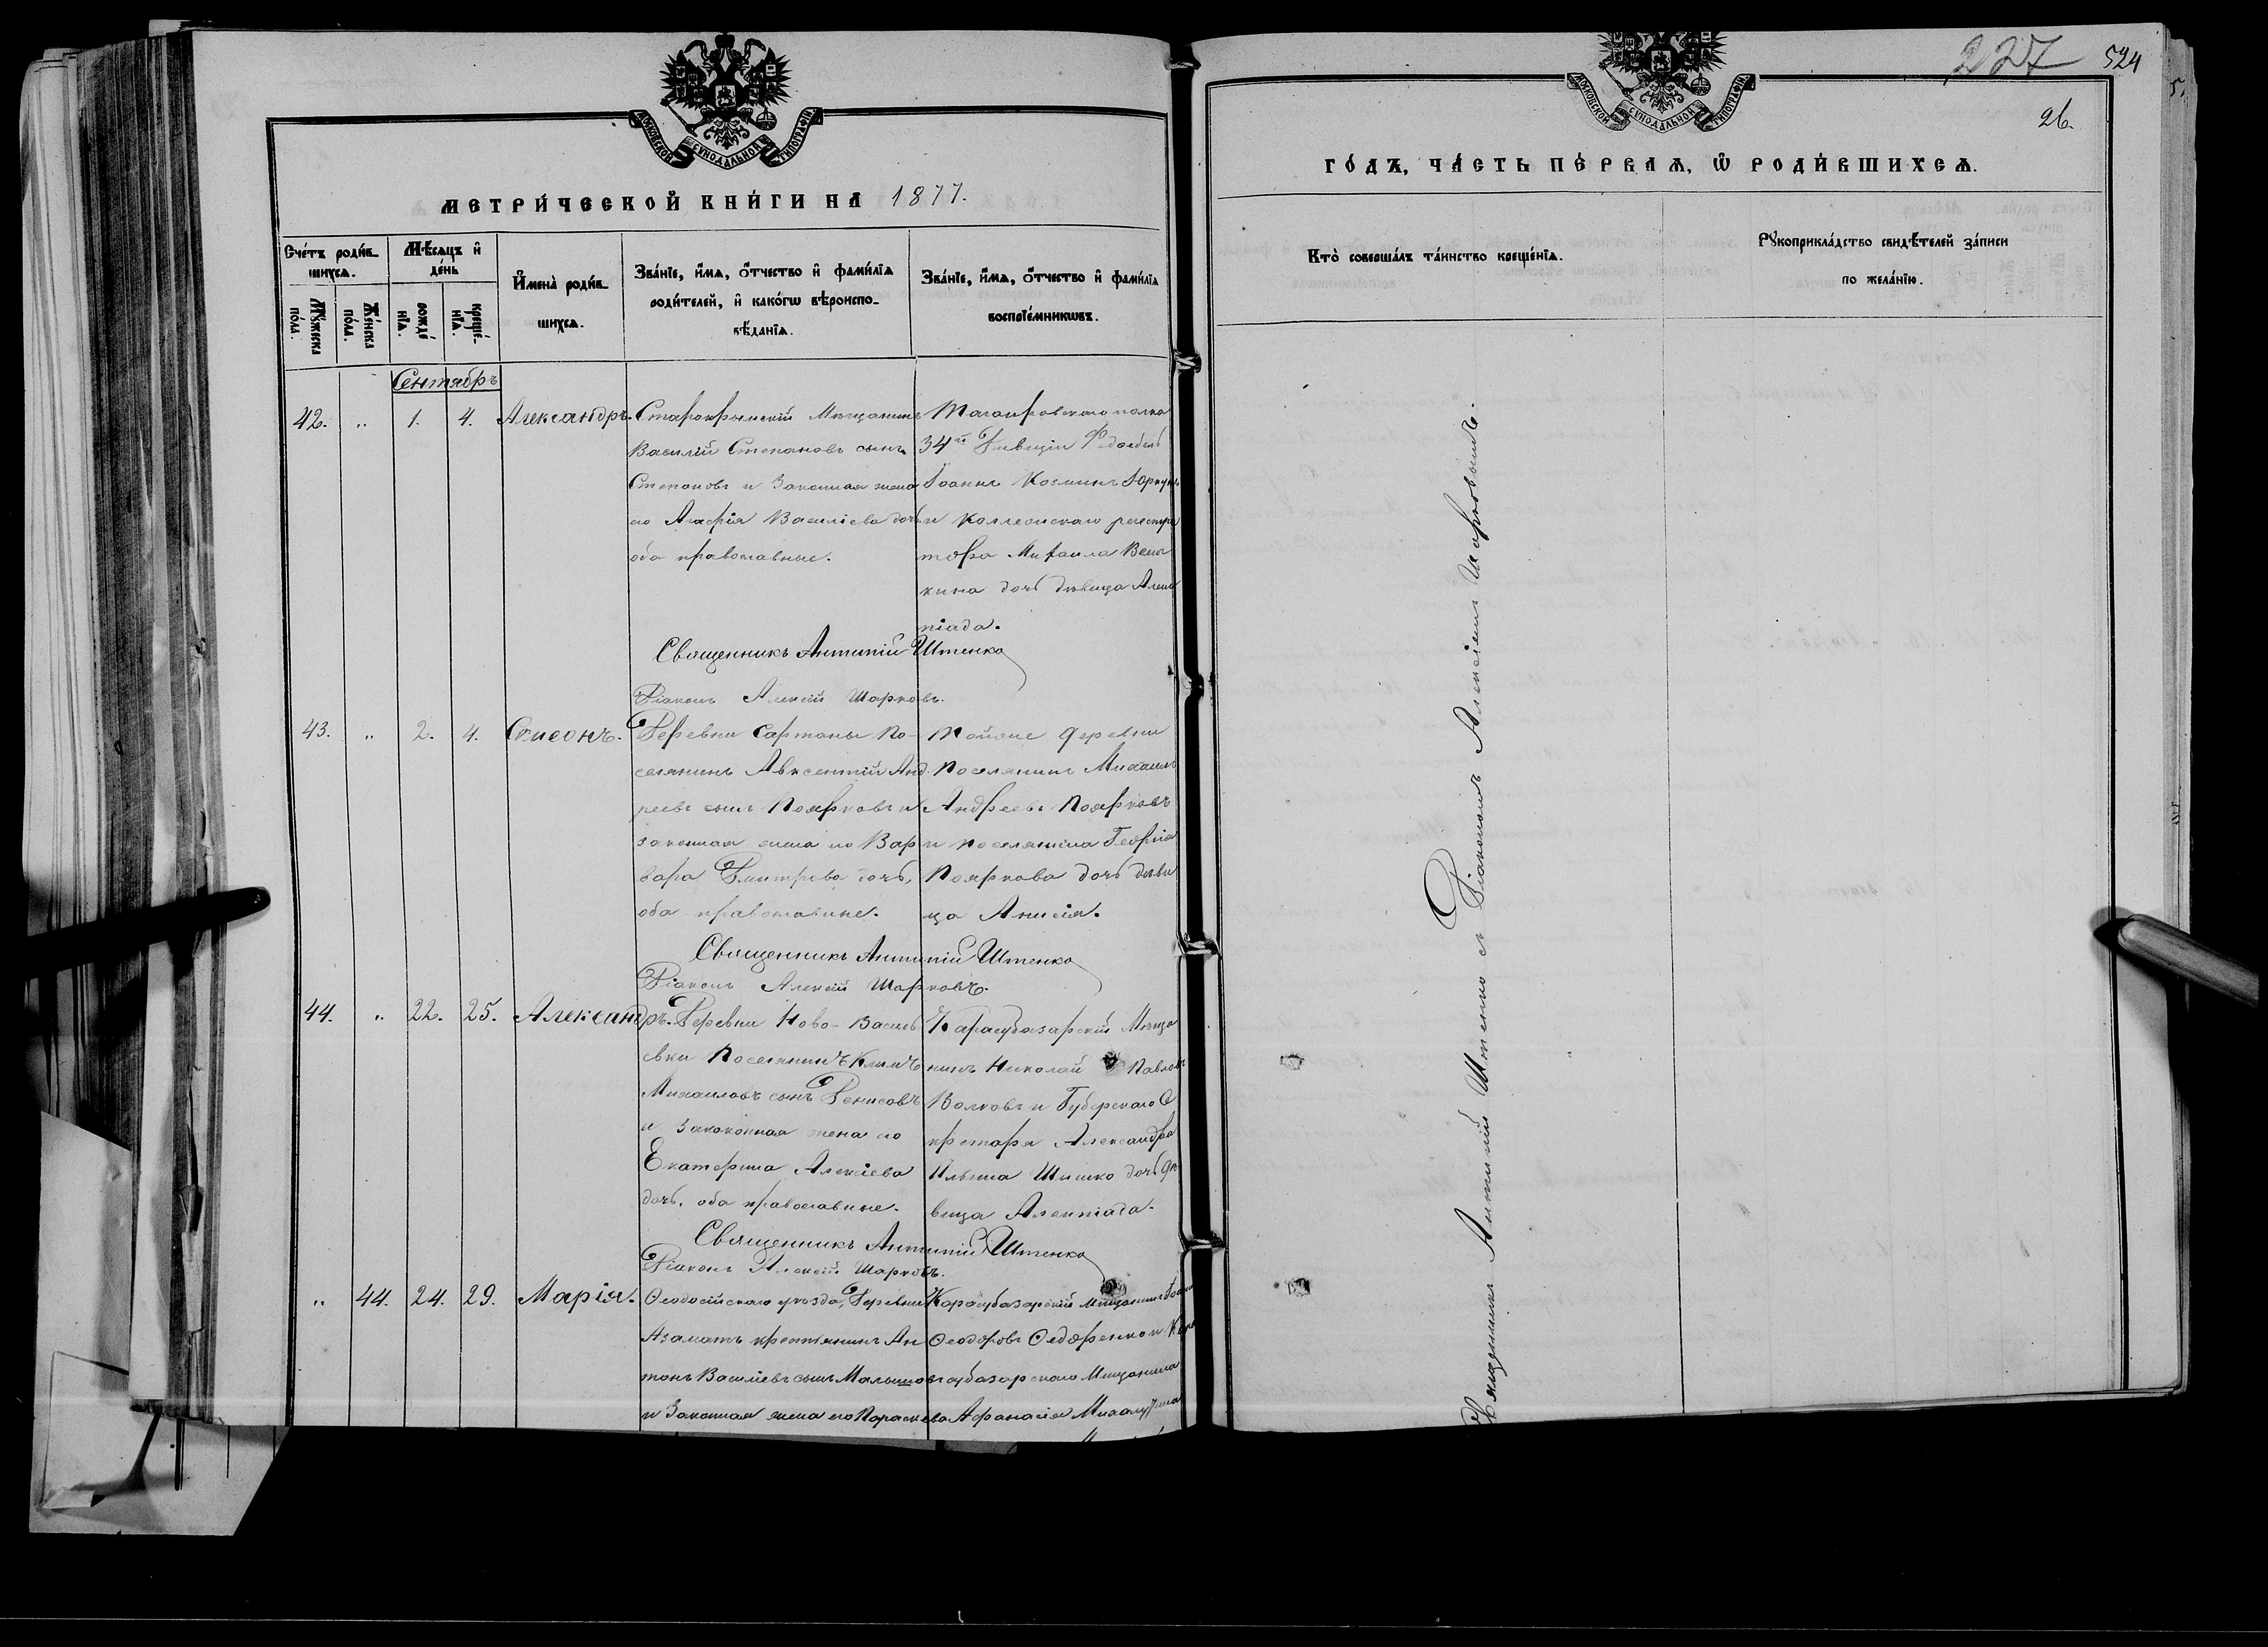 МОСКОВСКОЙ СѴНОДАЛЬНОЙ ТИПОГРАФІИ
МЕТРИ́ЧЕСКОЙ КНИ́ГИ НА 1877.
Сче́тъ роди́вшихсѧ.
Мѣ́сѧцъ и҆ де́нь
И҆мена̀ роди́вшихсѧ.
Зва́нїе, и҆́мѧ, ѻ҆́тчество и҆ фами́лїѧ
роди́телей, и҆ како́гѡ вѣроиспо-
вѣ́данїѧ.
Зва́нїе, и҆́мѧ, ѻ҆́тчество и҆ фами́лїѧ
воспрїе́мникѡвъ.
Мꙋ́жеска по́ла.
Же́нска по́ла.
рожде́нїѧ.
креще́нїѧ.
Сентябръ
42. " 1. 4. Александръ.
Старокрымскій Мѣщанинъ
Василій Степановъ сынъ
Степановъ и Законная жена
его Агафія Василіева дочь
оба православные.
полка
34й Дивизіи
Іоаннъ Козминъ
и Коллежскаго регистра
тора Михаила
кина дочь дѣвица
піада.
Священникъ Антипій Штенко
Діаконъ Алексій Шарковъ.
43. " 2. 4. Симеонъ.
Деревни Сартаны По-
селянинъ Авксентій Анд
реевъ сынъ Поярковъ и
законная жена его Вар
вара Дмитрева дочь,
оба православные.
Тойже деревни
Поселянинъ Михаилъ
Андреевъ Поярковъ
и поселянина Георгія
Пояркова дочь дѣви
ца Анисія.
Священникъ Антипій Штенко
Діаконъ Алексій Шарковъ.
44. " 22. 25. Александръ.
Деревни Ново-Василь
евки Поселянинъ Климъ
Михаиловъ сынъ Денисовъ
и законная жена его
Екатерина Алексіева
дочь, оба православные.
Карасубазарскій Мѣща
нинъ Николай Павловъ
Волковъ и Губерскаго Се
кретаря Александра
Ильина Шишко дочь дѣ
вица Алемпіада.
Священникъ Антипій Штенко
Діаконъ Алексій Шарковъ.
" 44. 24. 29. Марія.
Ѳеодосійскаго уѣзда, Деревни
Азаматъ крестьянинъ Ан
тонъ Василіевъ сынъ Малышовъ
и Законная жена его Параскева
Карасубазарскій Мѣщанинъ
Ѳеодоровъ Ѳедоренко и Кара
субазарскаго Мѣщанина
Афанасія
227 524
26.
МОСКОВСКОЙ СѴНОДАЛЬНОЙ ТИПОГРАФІИ
ГО́ДЪ, ЧА́СТЬ ПЕ́РВАѦ, Ѡ҆ РОДИ́ВШИХСѦ.
Кто̀ соверша́лъ та́инство креще́нїѧ.
Рꙋкоприкла́дство свидѣ́телей за́писи
по жела́нїю.
Священникъ Антипій Штенко съ Діакономъ Алексіемъ Шарковымъ.